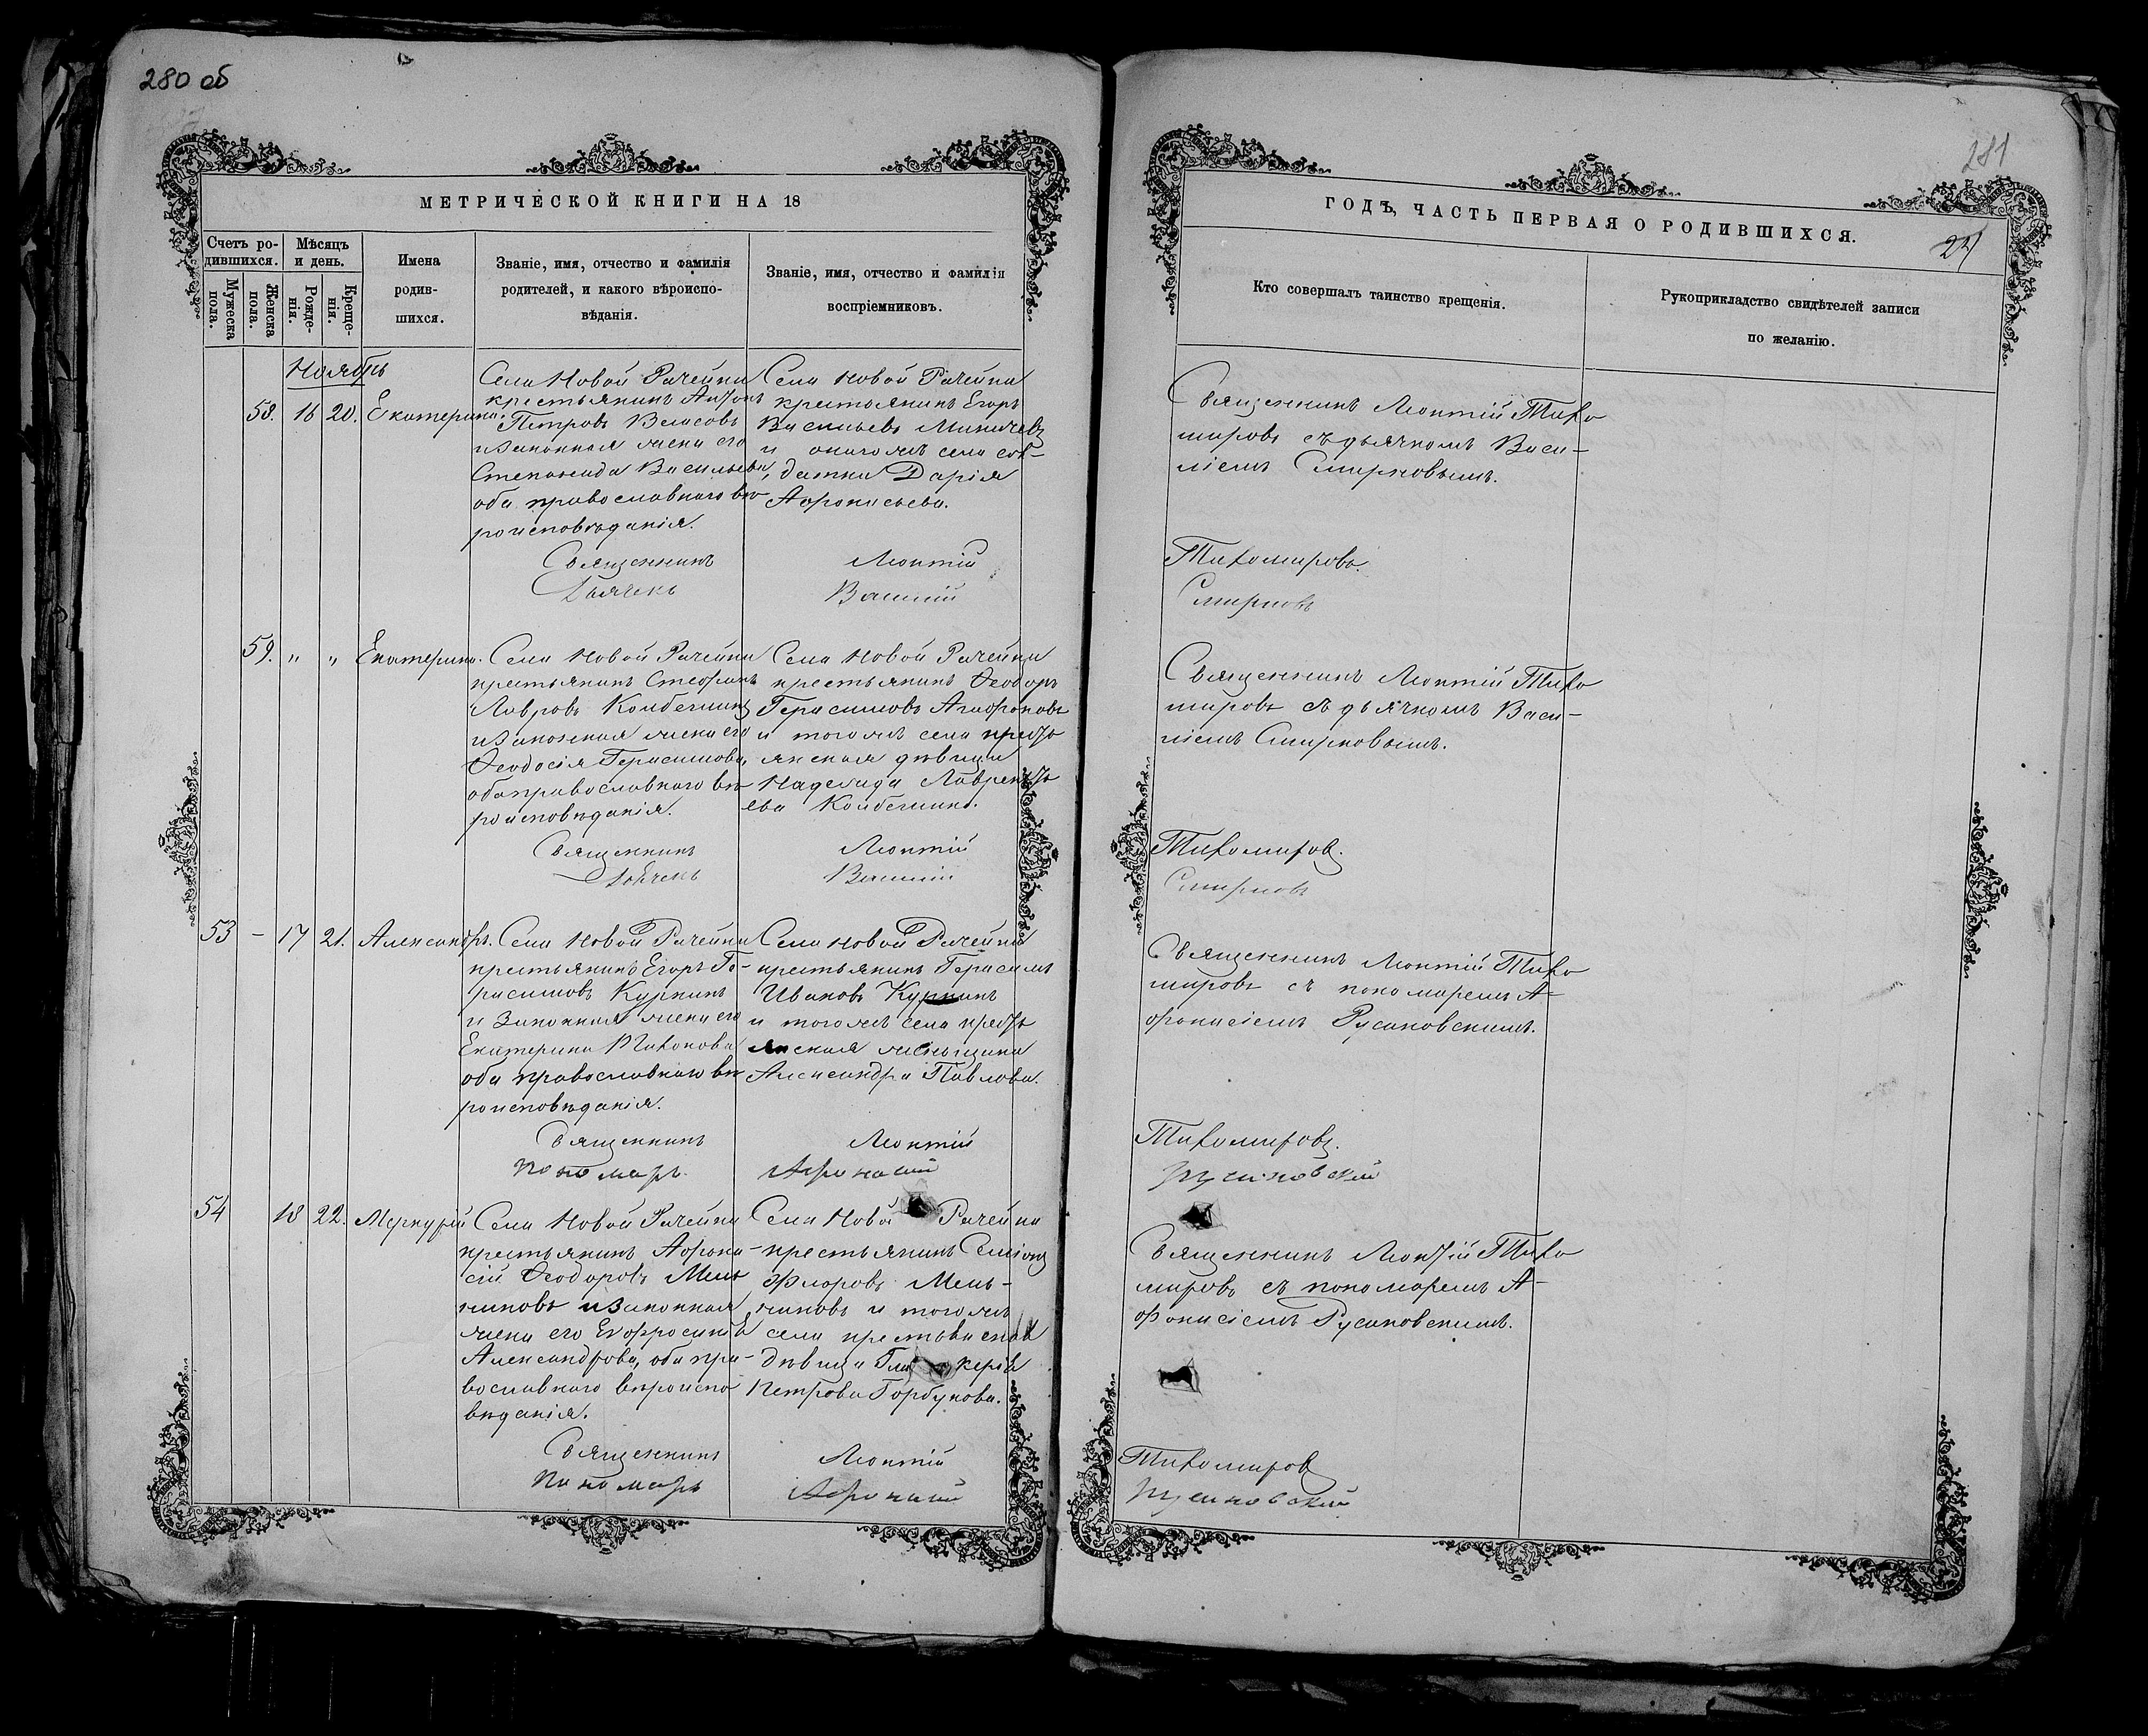 280 об
МЕТРИЧЕСКОЙ КНИГИ НА 18
Счетъ ро-
дившихся.
Мужеска
пола.
Женска
пола.
Мѣсяцъ
и день.
Рожде-
нія.
Креще-
нія.
Имена
родив-
шихся.
Званіе, имя, отчество и фамилія
родителей, и какого вѣроиспо-
вѣданія.
Званіе, имя, отчество и фамилія
воспріемниковъ.
Ноябрь
58. 16 20. Екатерина.
Села Новой Рачейки
крестьянинъ Антонъ
Петровъ Власовъ
и законная жена его
Степанида Васильева,
оба православнаго вѣ
роисповѣданія.
Села Новой Рачейки
крестьянинъ Егоръ
Васильевъ
и онагожъ села сол-
датка Дарія
Афонасьева.
Священникъ Леонтій
Дьячекъ Василій
59. " " Екатерина.
Села Новой Рачейки
крестьянинъ Стефанъ
Лавровъ
и законная жена его
Ѳеодосія Герасимова,
оба православнаго вѣ
роисповѣданія.
Села Новой Рачейки
крестьянинъ Ѳеодоръ
Герасимовъ Агафоновъ
и тогожъ села кресть
янская дѣвица
Надежда Лаврентье
ева
Священникъ Леонтій
Дьячекъ Василій
53 – 17 21. Александръ.
Села Новой Рачейки
крестьянинъ Егоръ Ге-
расимовъ Куркинъ
и законная жена его
Екатерина Тихонова
оба православнаго вѣ
роисповѣданія.
Села Новой Рачейки
крестьянинъ Герасимъ
Ивановъ Куркинъ
и тогожъ села кресть
янская женщина
Александра Павлова.
Священникъ Леонтій
Пономарь Афонасій
54 18 22. Меркурій
Села Новой Рачейки
крестьянинъ Афона-
сій Ѳеодоровъ Мель
никовъ и законная
жена его Евфросинія
Александрова, оба пра-
вославнаго вѣроиспо
вѣданія.
Села Новой Рачейки
крестьянинъ Семіонъ
Флоровъ Мель-
никовъ и тогожъ
села крестьянская
дѣвица Гликерія
Петрова Горбунова.
Священникъ Леонтій
Пономарь Афонасій
281
ГОДЪ, ЧАСТЬ ПЕРВАЯ О РОДИВШИХСЯ.
Кто совершалъ таинство крещенія.
Рукоприкладство свидѣтелей записи
по желанію.
Священникъ Леонтій Тихо
мировъ съ дьячкомъ Васи-
ліемъ Смирновымъ.
Тихомировъ.
Смирновъ
Священникъ Леонтій Тихо
мировъ съ дьячкомъ Васи-
ліемъ Смирновымъ.
Тихомировъ.
Смирновъ
Священникъ Леонтій Тихо
мировъ съ пономаремъ А-
фонасіемъ Русановскимъ.
Тихомировъ.
Русановскій
Священникъ Леонтій Тихо
мировъ съ пономаремъ А-
фонасіемъ Русановскимъ.
Тихомировъ
Русановскій